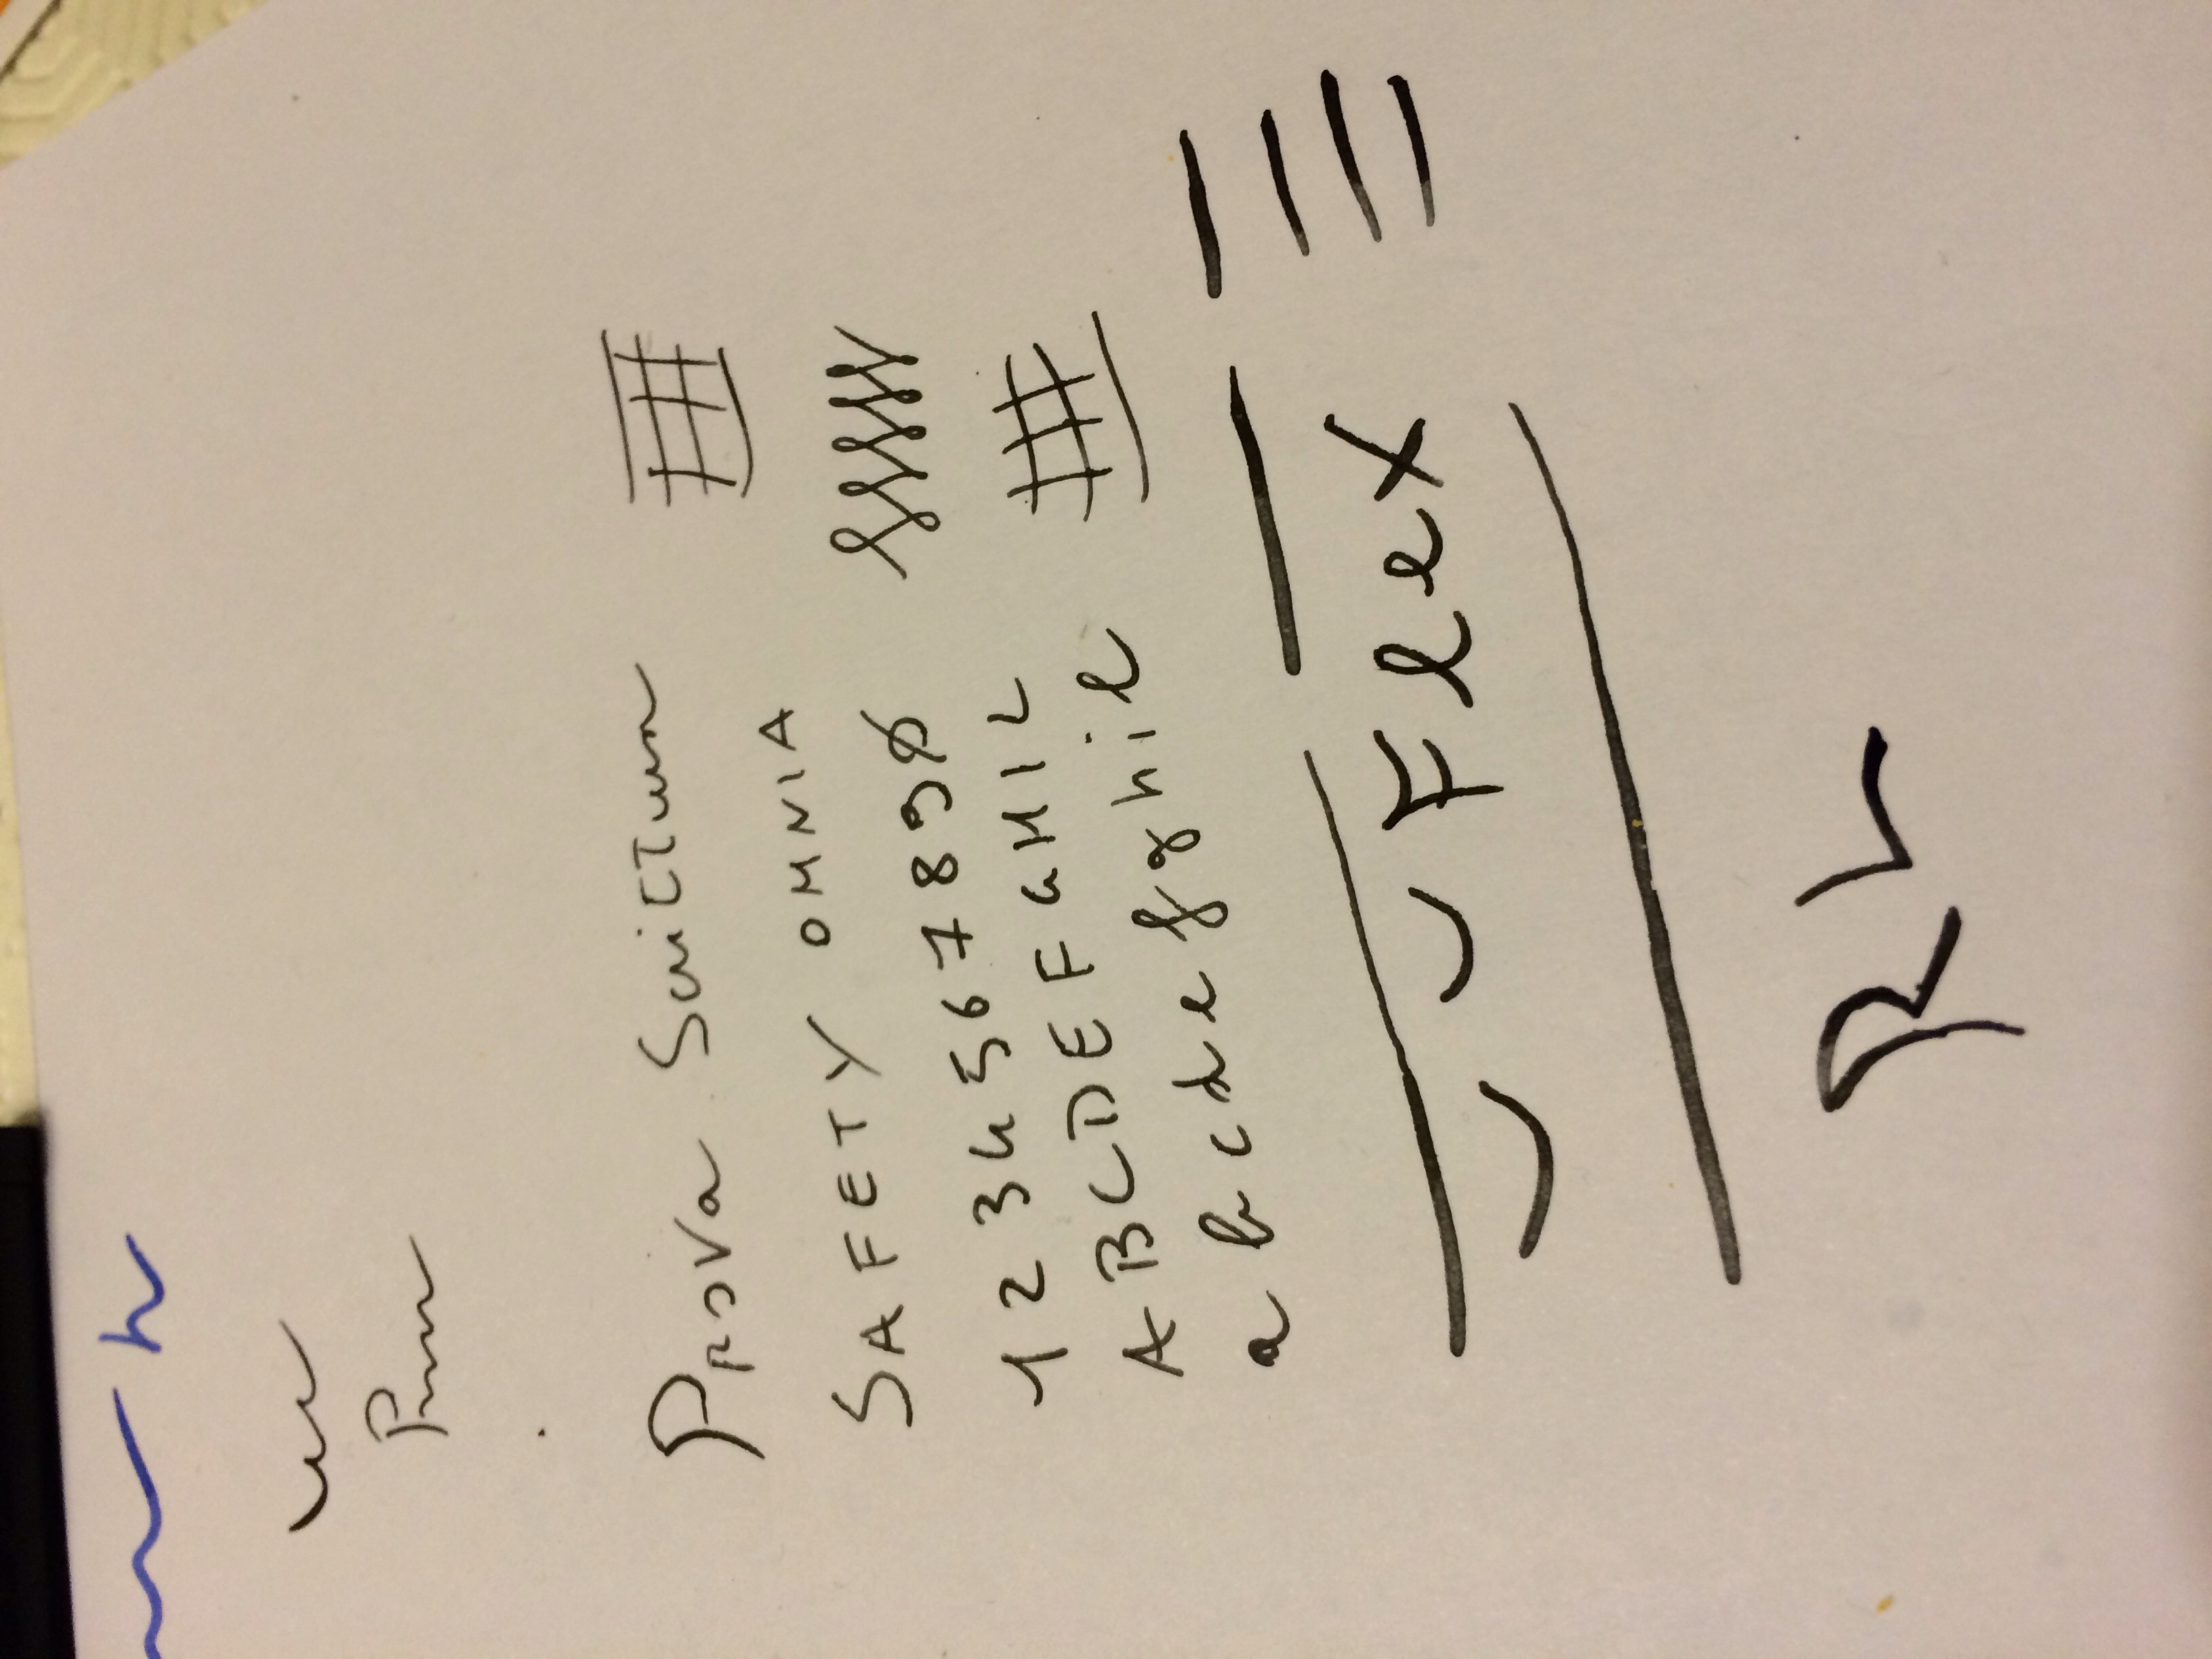 Prova Scrittura
SAFETY OMNIA
1234567890
ABCDEFGHIL
abcdefghil
Flex